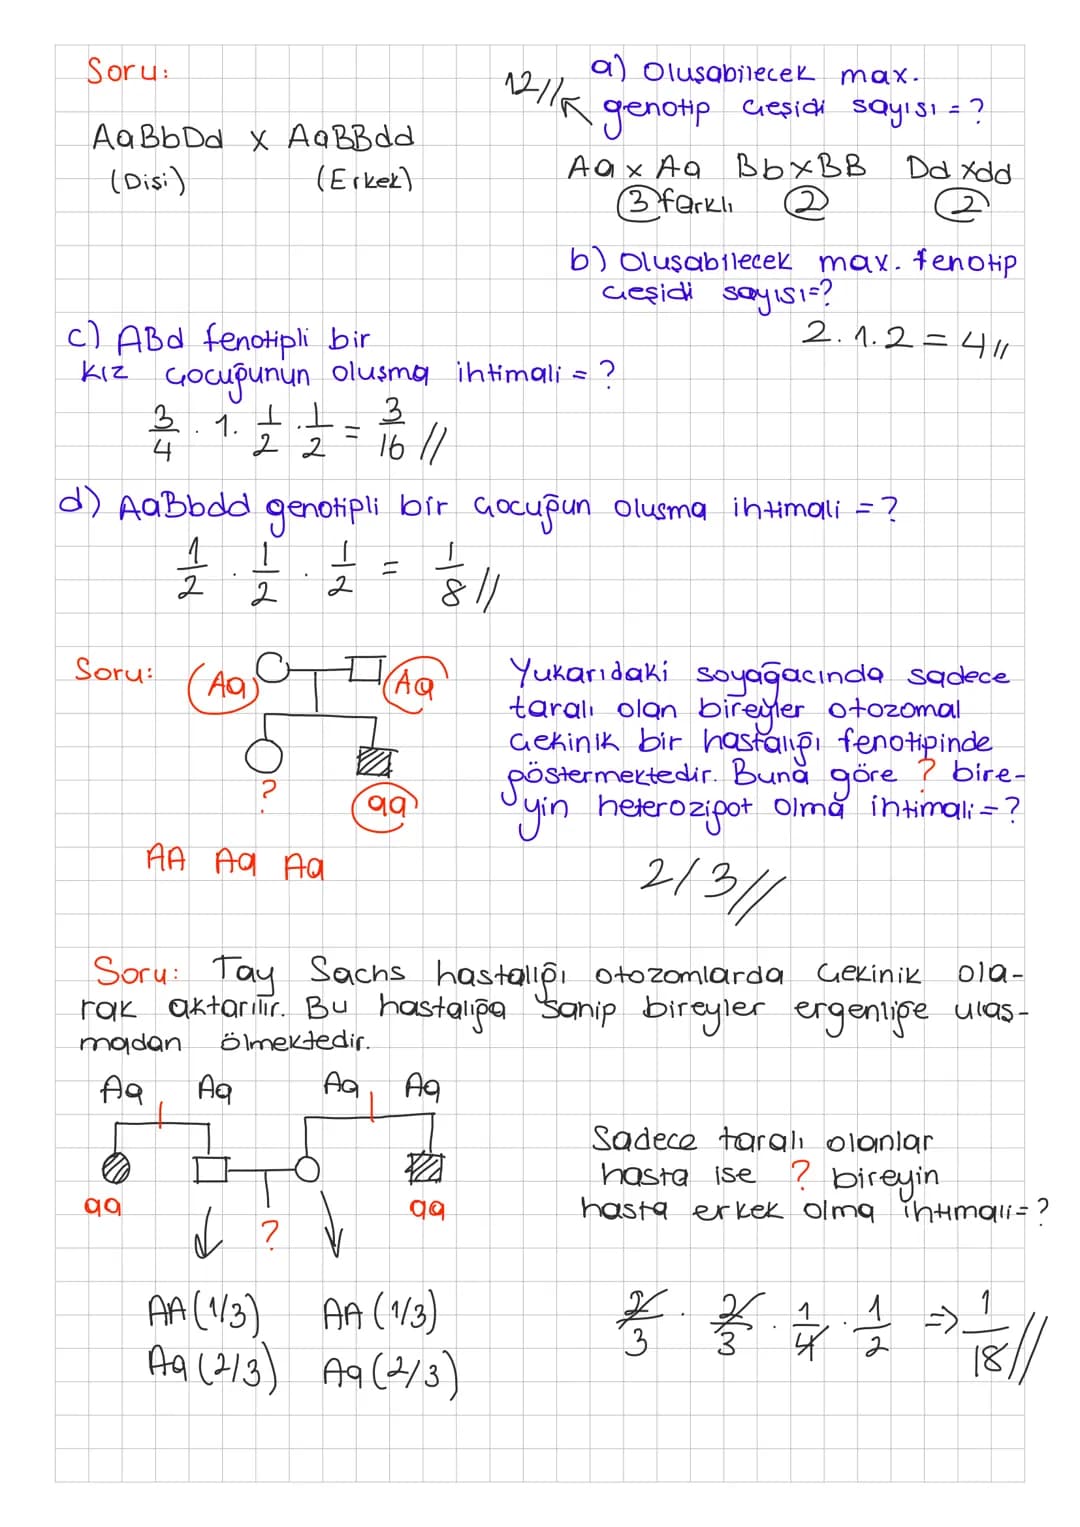 Soru:
AaBbDd x AaBBdd
(Dişi) (Erkek)
12//
a) Oluşabilecek max.
genotip çeşidi sayısı = ?
Aa x Aa Bb x BB Dd x dd
3 farklı 2 2
b) Oluşabilecek max. fenotip
çeşidi sayısı=?
2.1.2 = 4//
c) ABd fenotipli bir
kız çocuğunun oluşma ihtimali = ?
3/4 . 1. 1/2 . 1/2 = 3/16 //
d) AaBbdd genotipli bir çocuğun oluşma ihtimali = ?
1/2 . 1/2 . 1/2 = 1/8 //
Soru: Aa Aa
?
aa
AA Aa Aa
Yukarıdaki soyağacında sadece
taralı olan bireyler otozomal
çekinik bir hastalığı fenotipinde
göstermektedir. Buna göre ? bire-
yin heterozigot olma ihtimali = ?
2/3//
Soru: Tay Sachs hastalığı otozomlarda çekinik ola-
rak aktarılır. Bu hastalığa sahip bireyler ergenliğe ulaş-
madan ölmektedir.
Aa Aa Aa Aa
aa ? aa
AA (1/3) AA (1/3)
Aa (2/3) Aa (2/3)
Sadece taralı olanlar
hasta ise ? bireyin
hasta erkek olma ihtimali = ?
2/3 . 2/3 . 1/4 . 1/2 => 1/18//